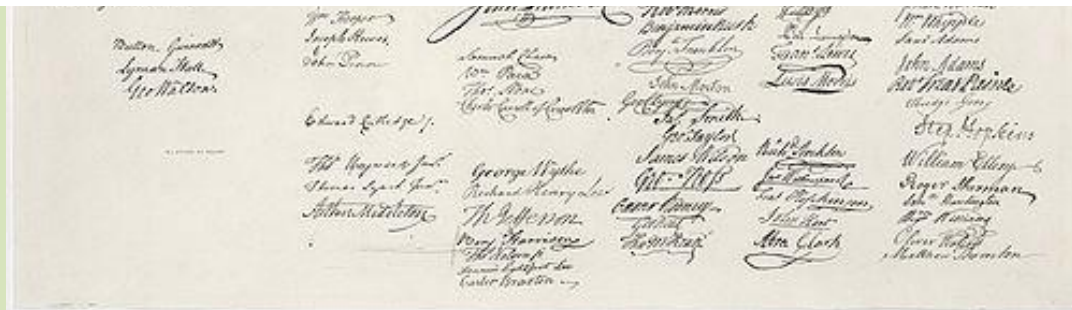 Button Gwinnett
Lyman Hall
Geo Walton
Wm Hooper
Joseph Hewes
John Penn
Edward Rutledge
Thos Heyward Junr
Thomas Lynch Junr
Arthur Middleton
Samuel Chase
Wm Paca
Thos Stone
Charles Carroll of Carrollton
George Wythe
Richard Henry Lee
Th Jefferson
Benj Harrison
Thos Nelson jr
Francis Lightfoot Lee
Carter Braxton
Robt Morris
Benjamin Rush
Benj Franklin
John Morton
Geo Clymer
Jas Smith
Geo Taylor
James Wilson
Geo Ross
Caesar Rodney
Geo Read
Tho M:Kean
Frans Lewis
Lewis Morris
Richd Stockton
Jno Witherspoon
Fras Hopkinson
John Hart
Abra Clark
Wm Whipple
Saml Adams
John Adams
Robt Treat Paine
Elbridge Gerry
Step Hopkins
William Ellery
Roger Sherman
Saml Huntington
Wm Williams
Oliver Wolcott
Matthew Thornton